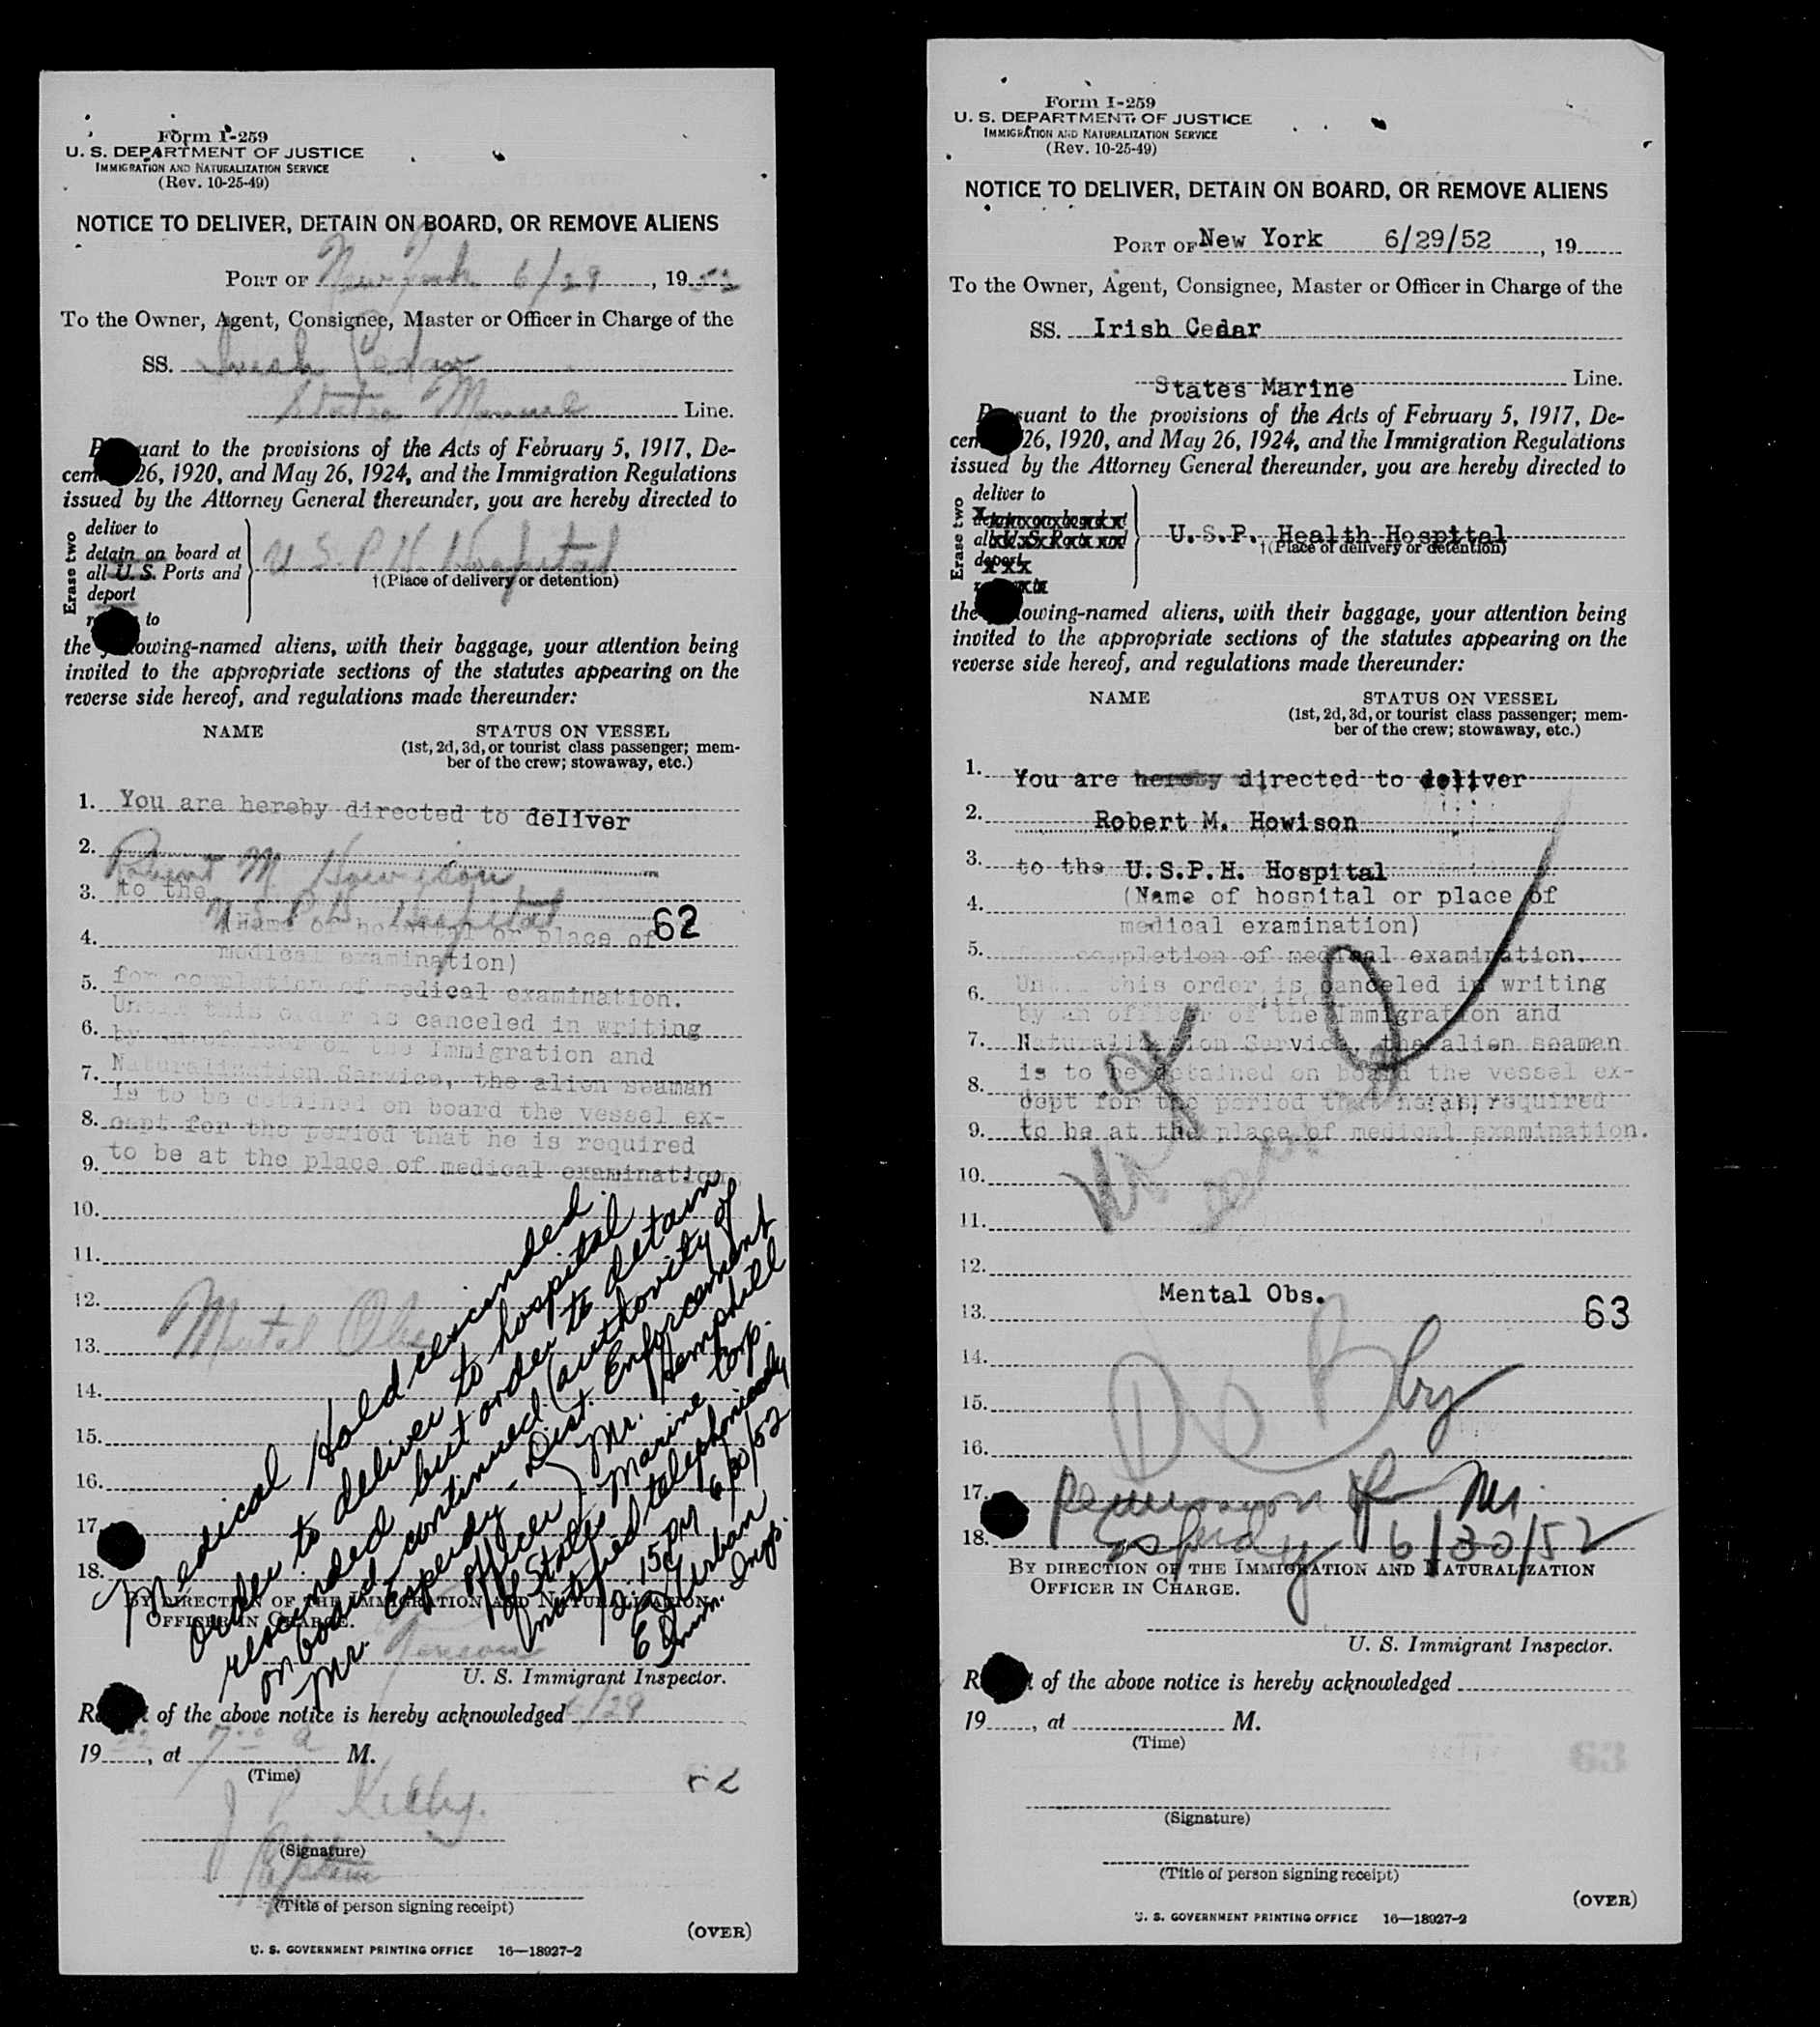 Form I-259
U. S. DEPARTMENT OF JUSTICE
IMMIGRATION AND NATURALIZATION SERVICE
(Rev. 10-25-49)
NOTICE TO DELIVER, DETAIN ON BOARD, OR REMOVE ALIENS
PORT OF New York 6/29, 1952
To the Owner, Agent, Consignee, Master or Officer in Charge of the
SS. Irish Cedar
States Marine Line.
P uant to the provisions of the Acts of February 5, 1917, De-
cem 26, 1920, and May 26, 1924, and the Immigration Regulations
issued by the Attorney General thereunder, you are hereby directed to
Erase two
deliver to
detain on board at
all U. S. Ports and
deport
r to
U.S.P.H. Hospital
†(Place of delivery or detention)
the owing-named aliens, with their baggage, your attention being
invited to the appropriate sections of the statutes appearing on the
reverse side hereof, and regulations made thereunder:
NAME STATUS ON VESSEL
(1st, 2d, 3d, or tourist class passenger; mem-
ber of the crew; stowaway, etc.)
1. You are hereby directed to deliver
2. Robert M. Howison
3. to the U.S.P.H. Hospital
4. (Name of hospital or place of 62
medical examination)
5. for completion of medical examination.
Until this order is canceled in writing
6. by an officer of the Immigration and
7. Naturalization Service, the alien seaman
is to be detained on board the vessel ex-
8. cept for the period that he is required
9. to be at the place of medical examination
10.
11.
12.
13. Mental Obs
14.
15.
16.
17.
18.
Medical Hold rescinded.
Order to deliver to hospital
rescinded but order to detain
on board continued (authority of
Mr. Esperdy - Dist. Enforcement
Officer) Mr. Hemphill
of States Marine Corp.
notified telephonically
2:15 PM 6/30/52
E Urban
Imm. Insp.
BY DIRECTION OF THE IMMIGRATION AND NATURALIZATION
OFFICER IN CHARGE.
U. S. Immigrant Inspector.
Re t of the above notice is hereby acknowledged 6/29
1952, at 7:00 a M.
(Time)
J Kelly.
(Signature)
Captain
(Title of person signing receipt)
(OVER)
U. S. GOVERNMENT PRINTING OFFICE 16—18927-2
Form I-259
U. S. DEPARTMENT OF JUSTICE
IMMIGRATION AND NATURALIZATION SERVICE
(Rev. 10-25-49)
NOTICE TO DELIVER, DETAIN ON BOARD, OR REMOVE ALIENS
PORT OF New York 6/29/52, 19
To the Owner, Agent, Consignee, Master or Officer in Charge of the
SS. Irish Cedar
States Marine Line.
P suant to the provisions of the Acts of February 5, 1917, De-
cem 26, 1920, and May 26, 1924, and the Immigration Regulations
issued by the Attorney General thereunder, you are hereby directed to
Erase two
deliver to
detain on board at
all U. S. Ports and
deport
U.S.P. Health Hospital
†(Place of delivery or detention)
the lowing-named aliens, with their baggage, your attention being
invited to the appropriate sections of the statutes appearing on the
reverse side hereof, and regulations made thereunder:
NAME STATUS ON VESSEL
(1st, 2d, 3d, or tourist class passenger; mem-
ber of the crew; stowaway, etc.)
1. You are hereby directed to deliver
2. Robert M. Howison
3. to the U.S.P.H. Hospital
4. (Name of hospital or place of
medical examination)
5. for completion of medical examination.
6. Until this order is canceled in writing
by an officer of the Immigration and
7. Naturalization Service, the alien seaman
8. is to be detained on board the vessel ex-
cept for the period that he is required
9. to be at the place of medical examination.
10.
11.
12.
Mental Obs.
13. 63
14.
15. by
16.
17. permission of Mr.
18. Esperdy 6/30/52
BY DIRECTION OF THE IMMIGRATION AND NATURALIZATION
OFFICER IN CHARGE.
U. S. Immigrant Inspector.
R t of the above notice is hereby acknowledged
19, at M.
(Time)
63
(Signature)
(Title of person signing receipt)
(OVER)
U. S. GOVERNMENT PRINTING OFFICE 16—18927-2